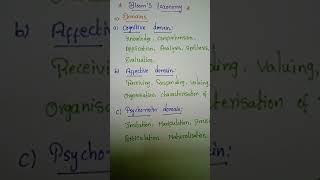 * Bloom's Taxonomy *
a) Domains
a) Cognitive domain:
Knowledge, comprehension,
Application, Analysis, Synthesis,
Evaluation.
b) Affective domain:
Receiving, Responding, valuing,
Organisation, characterisation of
c) Psycho-motor domain:
Imitation, Manipulation,
Articulation, Naturalisation.
b) Affective
Receiving
Valuing,
Organis
c) Psycho-